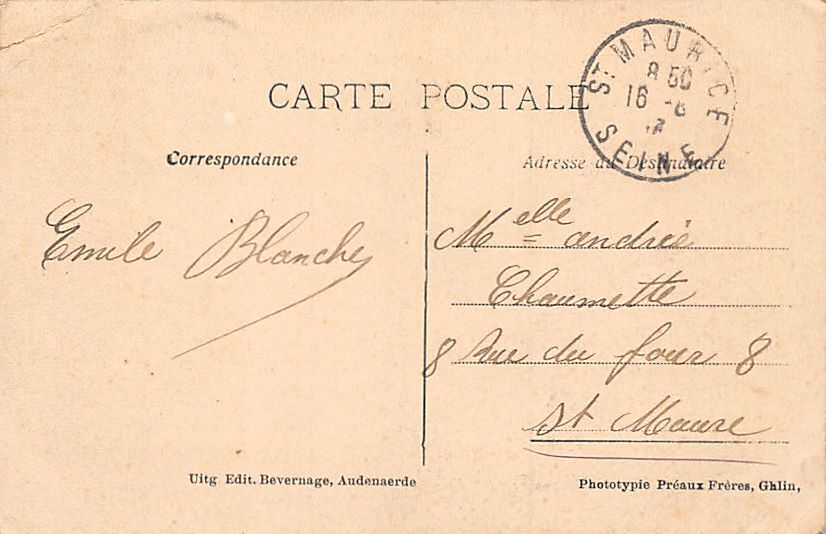 CARTE POSTALE
ST MAURICE
8 50
16 -8
SEINE
Correspondance
Adresse du Destinataire
Emile Blanche
Melle andrée
Chaumette
8 Rue du four 8
St Maure
Uitg Edit. Bevernage, Audenaerde
Phototypie Préaux Frères, Ghlin,